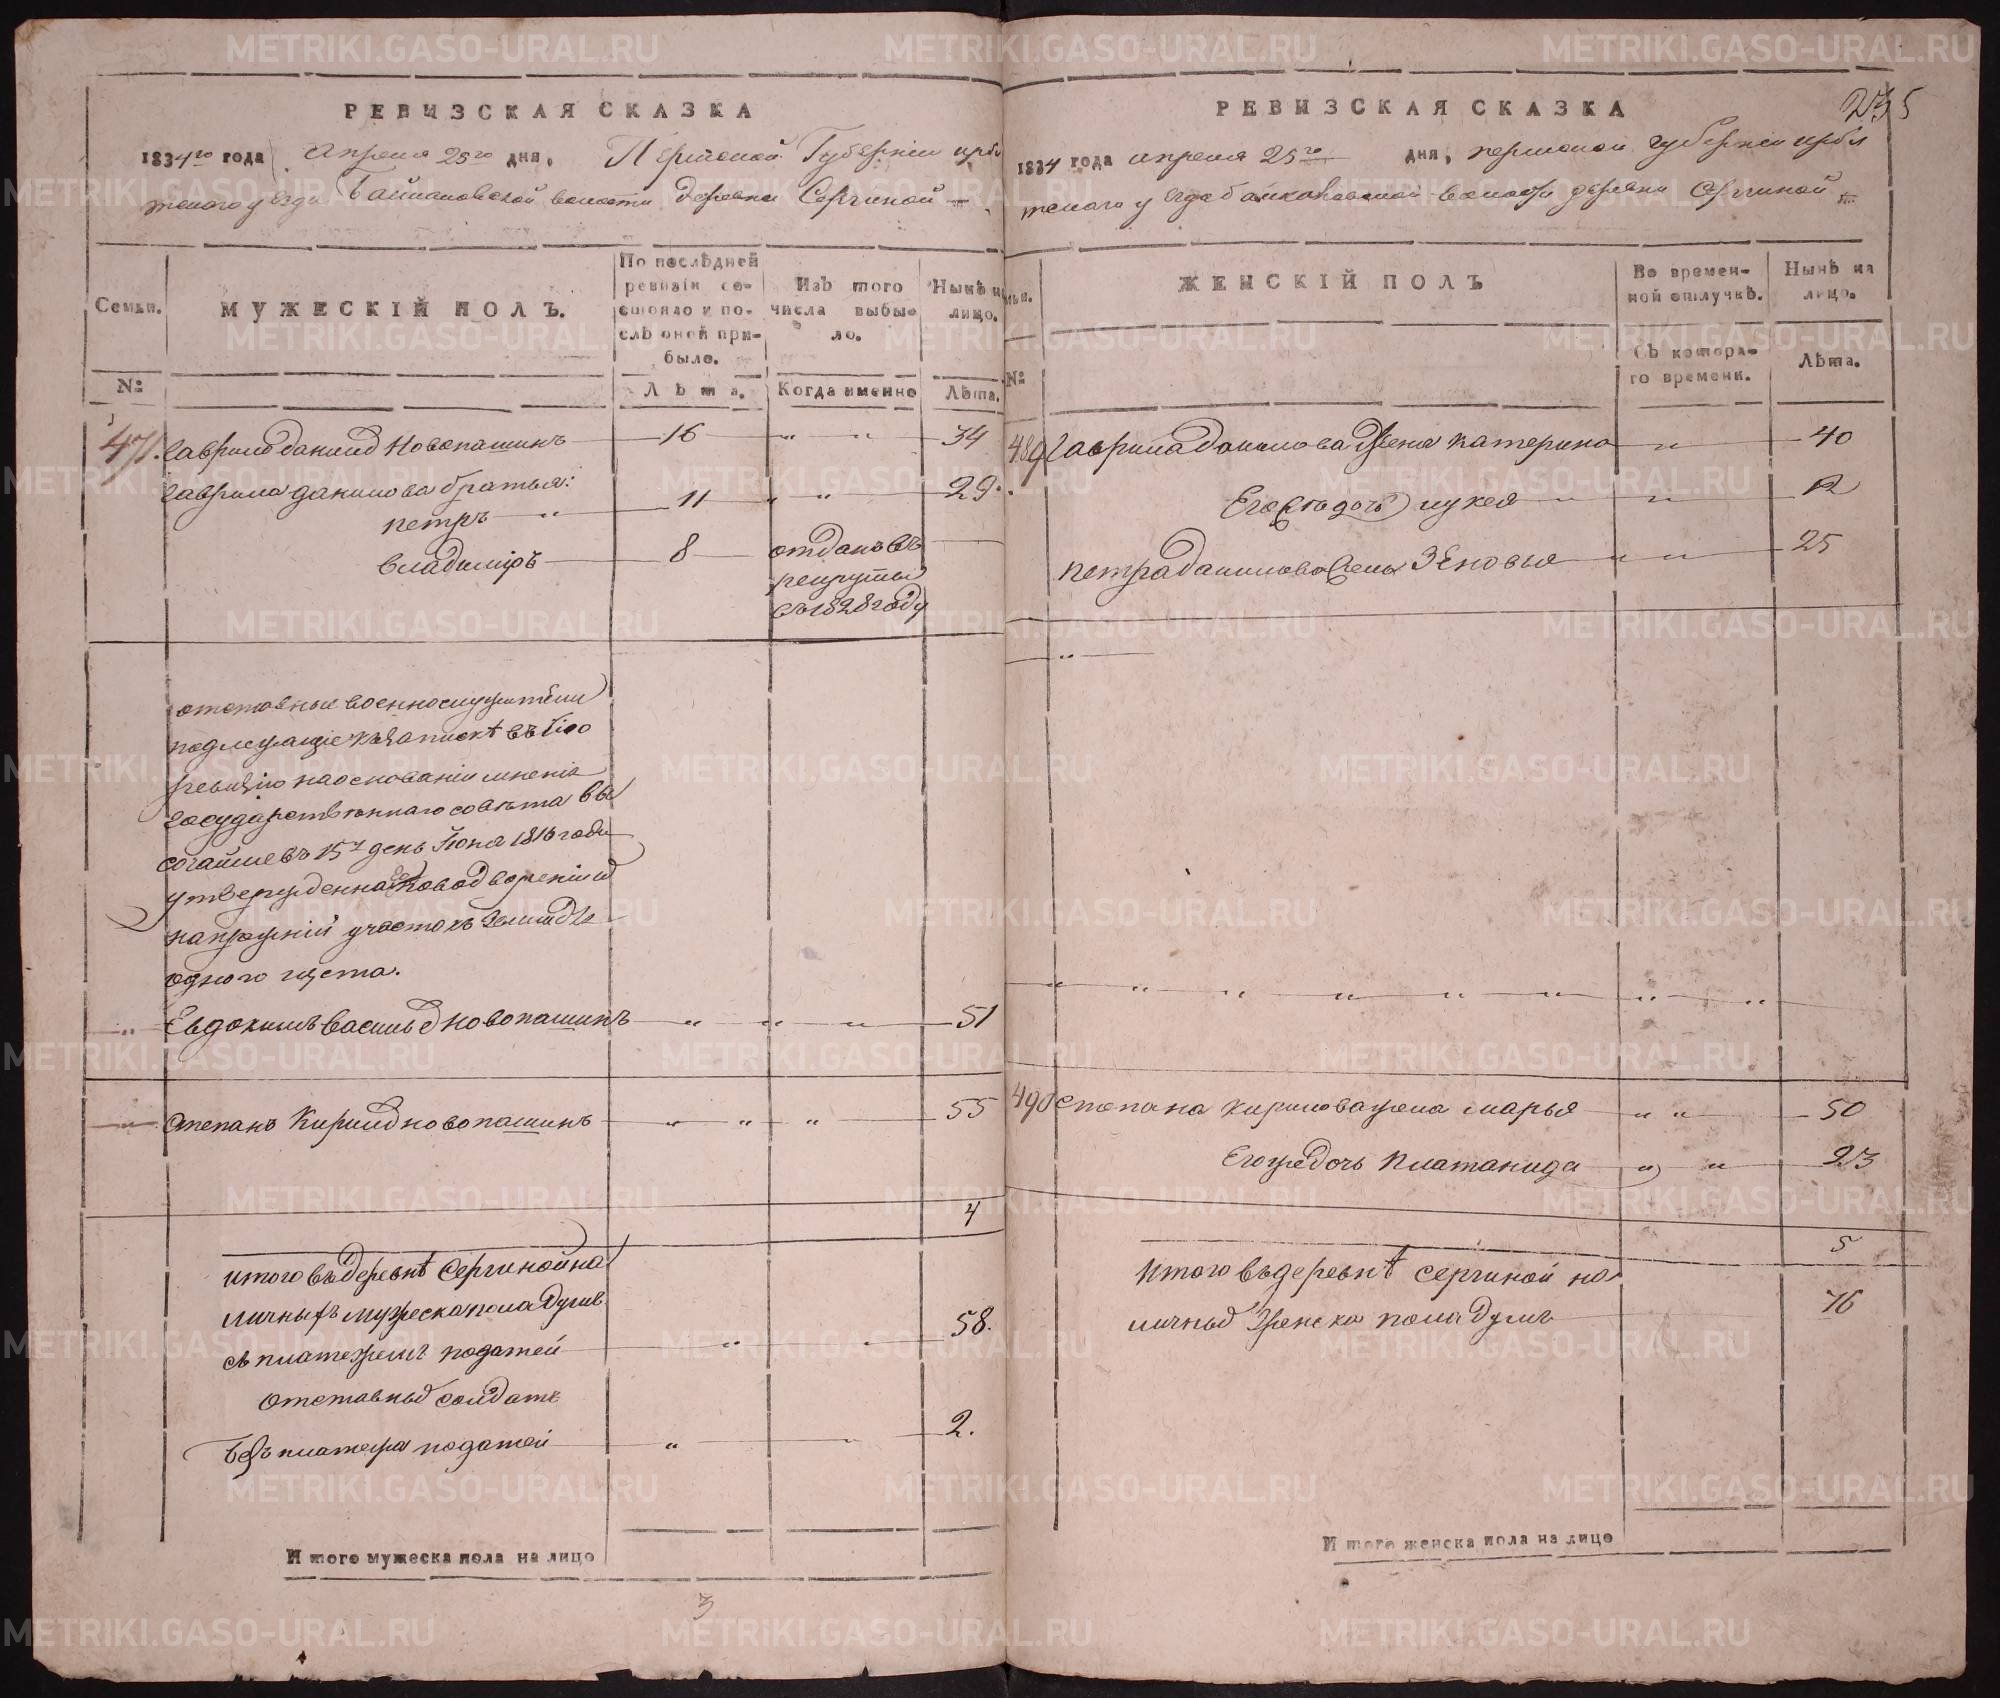 РЕВИЗСКАЯ СКАЗКА
1834го года Апреля 25го дня, Пермской Губернiи ирби
тского уезда Байкаловской волости Деревни Сергиной
Семьи.
МУЖЕСКІЙ ПОЛЪ.
По послѣдней ревизіи состояло и послѣ оной прибыло.
Изъ того числа выбыло.
Нынѣ на лицо.
№:
Лѣта.
Когда именно
Лѣта.
471. Гаврило данилов Новопашинъ 16 " " 34
Гаврила данилова братья:
петръ " 11 " " 29.
владимiръ 8 отданъ въ
рекруты
въ 1828 году
отставные военнослужители
подлежащiе къ Запискѣ въ сiю
ревизiю на основанiи мненiя
государственнаго совѣта вы
сочайше въ 15й день Iюня 1816 года
утвержденна
на прежнiй участокъ Земли
одного щета.
" Евдокимъ васильев новопашинъ " " " 51
" Степанъ Кирилов новопашинъ " " " 55
4
итого въ деревнѣ Сергиной на
личныхъ мужеска пола душъ
съ платежемъ податей " " 58.
отставных солдатъ
безъ платежа податей " 2.
Итого мужеска пола на лицо
3
РЕВИЗСКАЯ СКАЗКА
235
1834 года апреля 25го дня, пермской губернiи ирби
тскаго уезда байкаловской волости деревни Сергиной
ЖЕНСКІЙ ПОЛЪ
Во временной отлучкѣ.
Нынѣ на лицо.
№:
Съ которого времени.
Лѣта.
489 Гаврила данилова жена катерина " 40
Его дочь лукея " " 12
петра данилова жена Зеновья " " 25
"
" " " " " " " "
490 степана кирилова жена марья " " 50
Его же дочь платанида " " 23
5
Итого въ деревнѣ сергиной на
личных женска пола душъ 76
Итого женска пола на лицо
METRIKI.GASO-URAL.RU